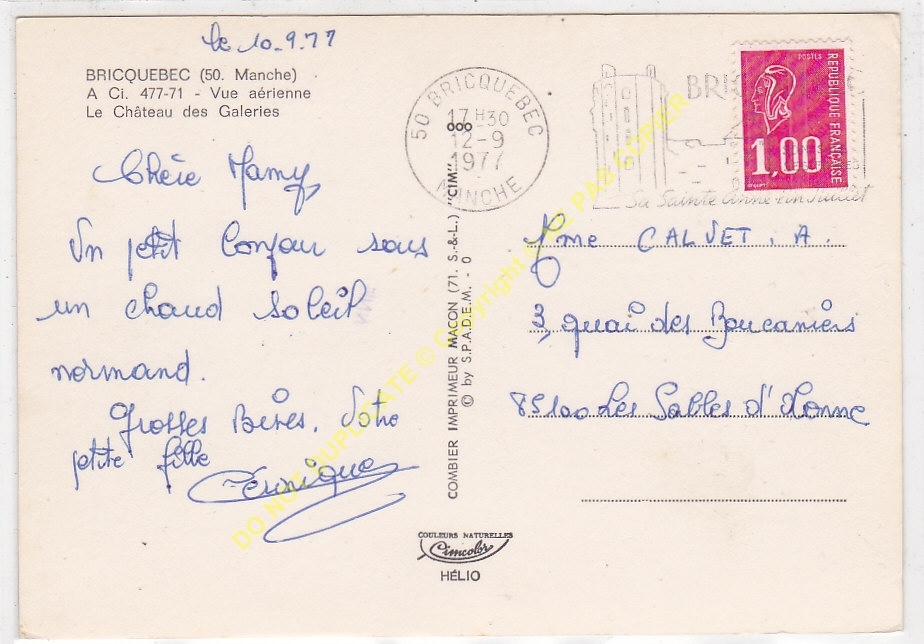 le 10.9.77
BRICQUEBEC (50. Manche)
A Ci. 477-71 - Vue aérienne
Le Château des Galeries
Chère Mamy
Un petit bonjour sous
un chaud soleil
normand.
Grosses Bises. Votre
petite fille
Véronique
COMBIER IMPRIMEUR MACON (71. S.-&-L.) "CIM"
© by S.P.A.D.E.M. - 0
COULEURS NATURELLES
Cimcolor
HÉLIO
50 BRICQUEBEC
17 H30
12-9
1977
MANCHE
BRIC
Sa Sainte Anne Fin Juillet
POSTES
REPUBLIQUE FRANÇAISE
1,00
Mme CALVET. A.
3, quai des Boucaniers
85100 Les Sables d'Olonne
DO NOT DUPLICATE © Copyright NE PAS COPIER